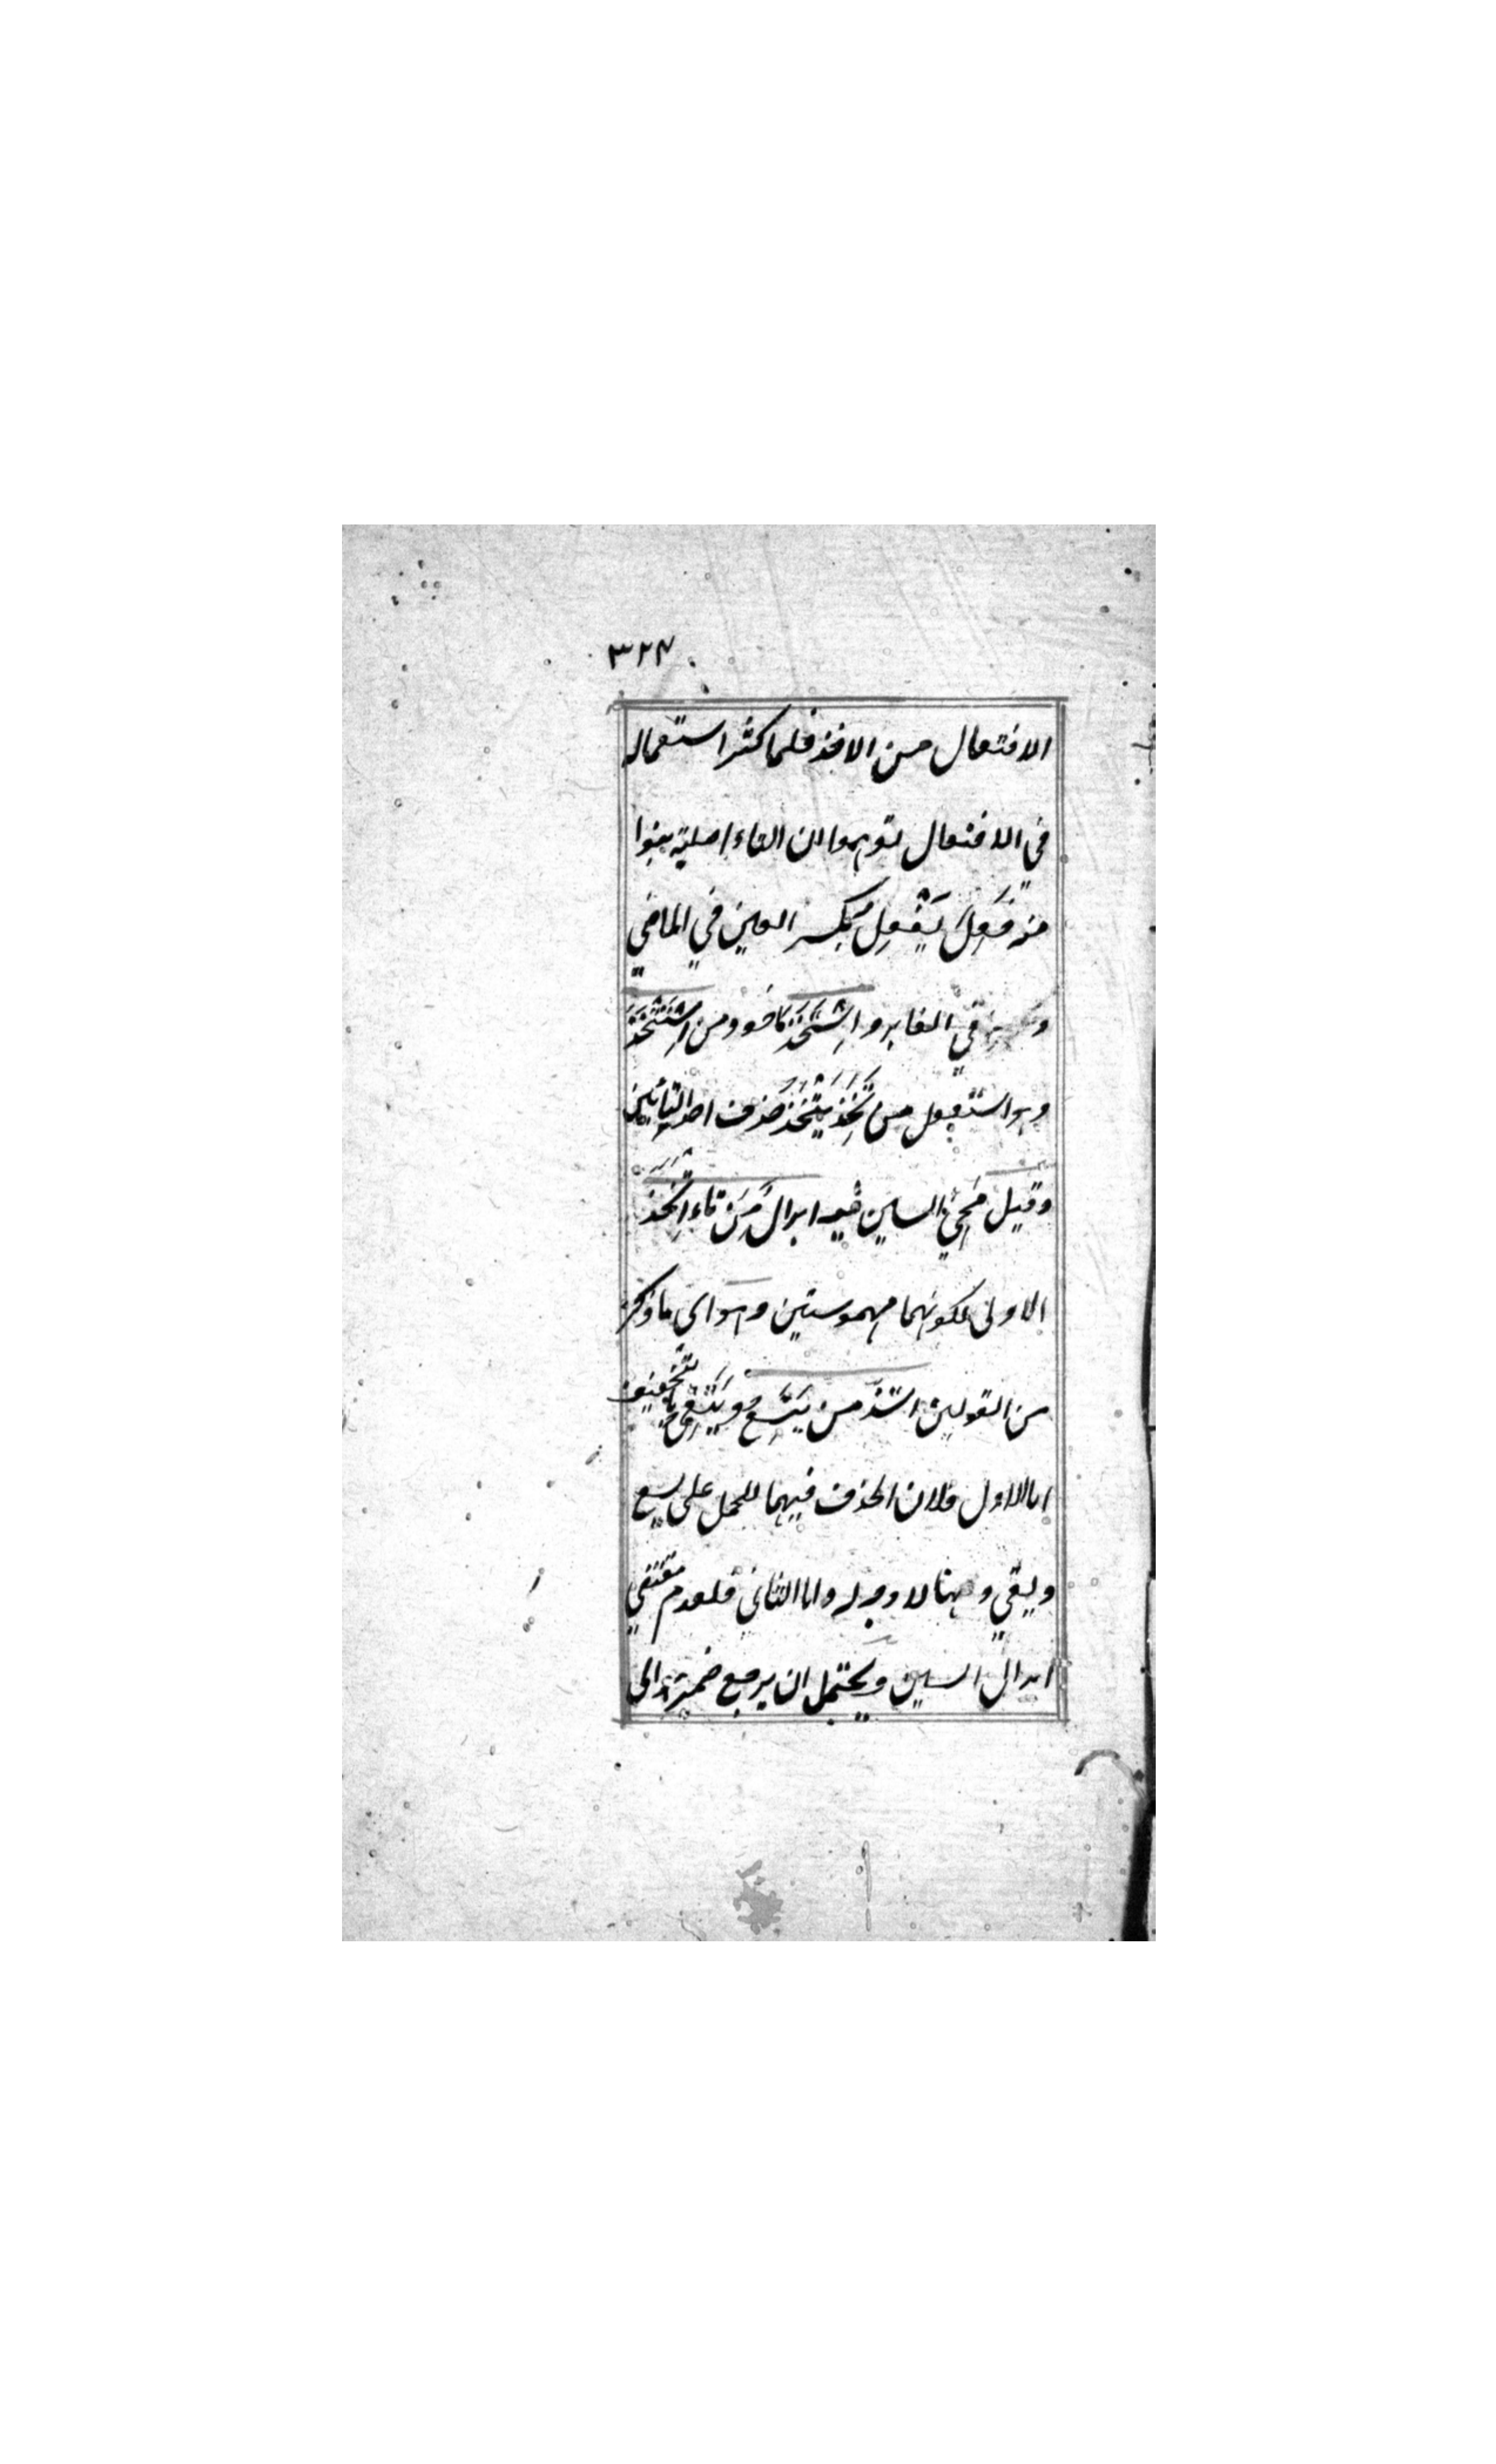 ٣٢٧
الافتعال من الاخذ فلما كثر استعماله
في الافتعال توهموا ان التاء اصلية فبنوا
منه فَعِلَ يَفْعَلُ بكسر العين في الماضي
و في الغابر و اِسْتَخَذَ ماخوذ من اِسْتَتْخَذَ
وهو استفعل من تَخِذَ يَتْخَذُ حذف احد التائين
وقيل مَجِيُ السين فيه ابدالٌ مِنْ تاء اِتَّخَذَ
الاولى لكونهما مهموستين وهو اى ما ذكر
من القولين اشذ من يَتَسِعُ و يَتَقِي بالتخفيف
اما الاول فلان الحذف فيهما للحمل على يسع
ويقي وههنا لا وجه له واما الثانى فلعدم مقتضي
ابدال السين ويحتمل ان يرجع ضميره الى